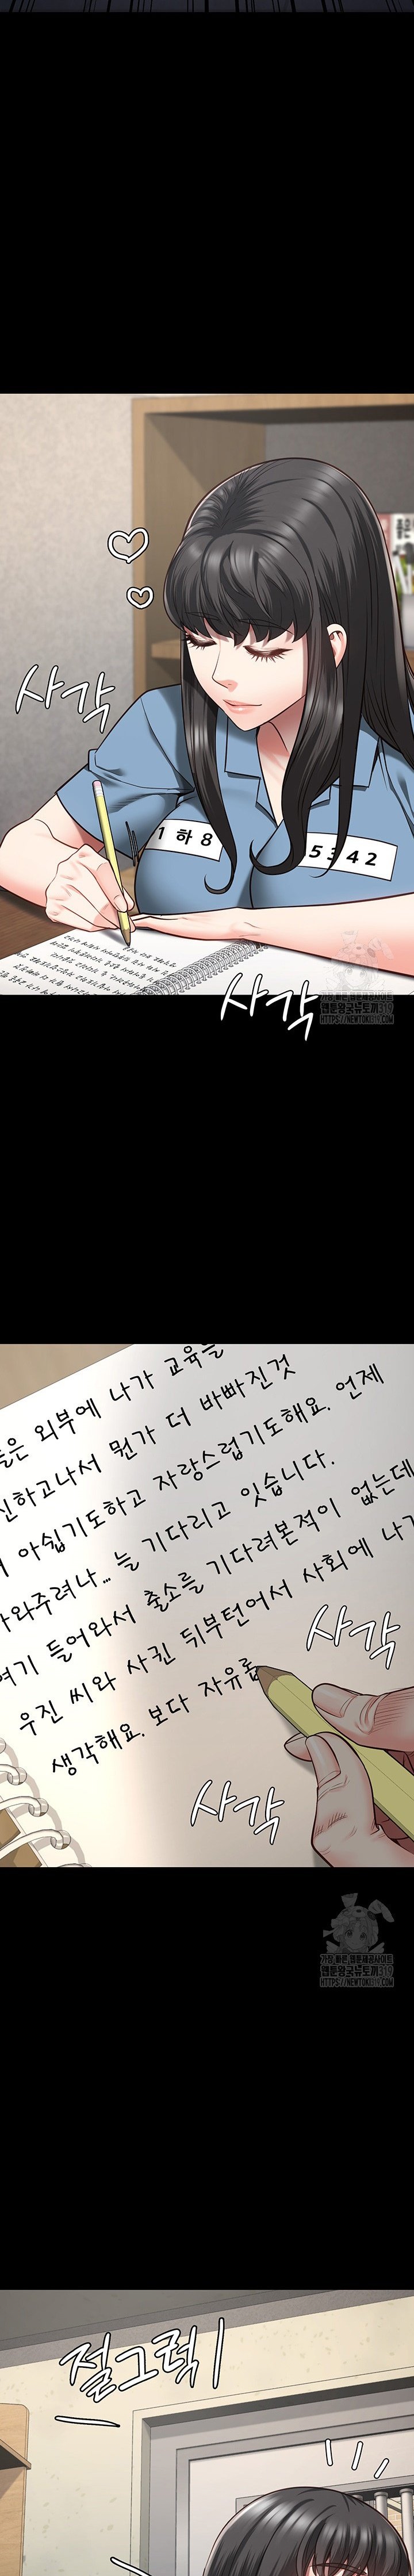 사각
1 하 8
5342
사각
들은 외부에 나가 교육을
신하고나서 뭔가 더 바빠진것
아쉽기도하고 자랑스럽기도해요. 언제
와주려나... 늘 기다리고 잇습니다.
여기 들어와서 출소를 기다려본적이 없는데
우진 씨와 사귄 뒤부턴어서 사회에 나가
생각해요. 보다 자유롭
사각
사각
가장 빠른 웹툰제공사이트
웹툰왕국뉴토끼319
HTTPS://NEWTOKI319.COM
철그럭